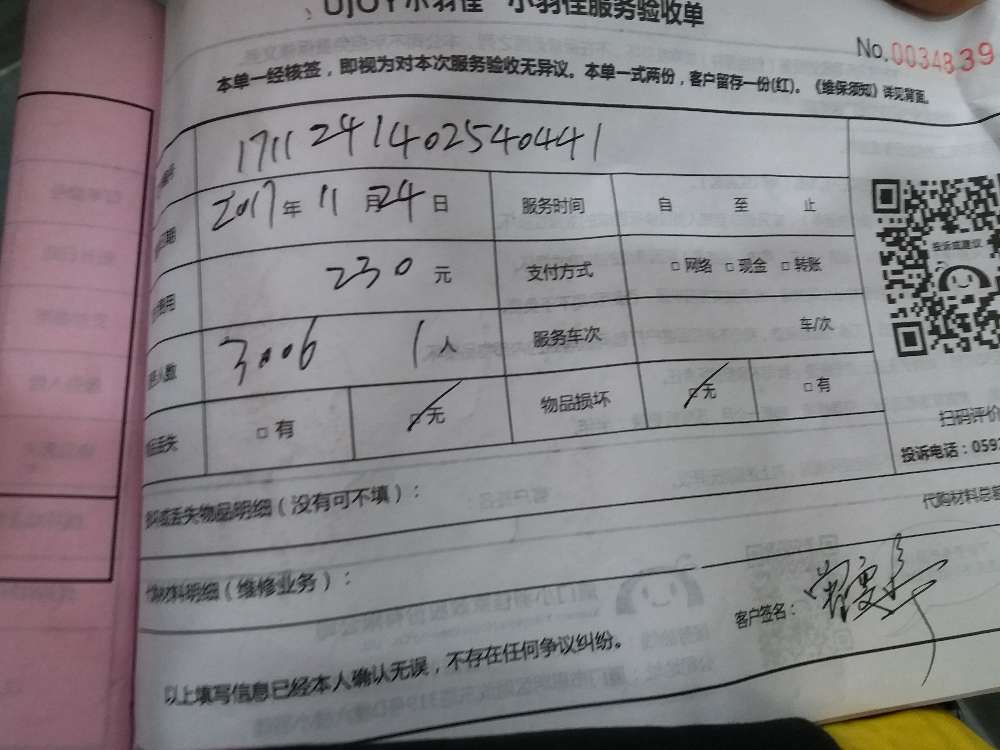 小羽佳服务验收单
No.0034839
本单一经核签，即视为对本次服务验收无异议。本单一式两份，客户留存一份(红)。《维保须知》详见背面。
1711241402540441
2017年 11月24日 服务时间 自 至 止
230元 支付方式 □网络 □现金 □转账
3006 1人 服务车次 车/次
丢失 □有 □无 物品损坏 □无 □有
投诉或建议
扫码评价
投诉电话：059
丢失物品明细（没有可不填）：
代购材料总额
材料明细（维修业务）：
客户签名：
以上填写信息已经本人确认无误，不存在任何争议纠纷。